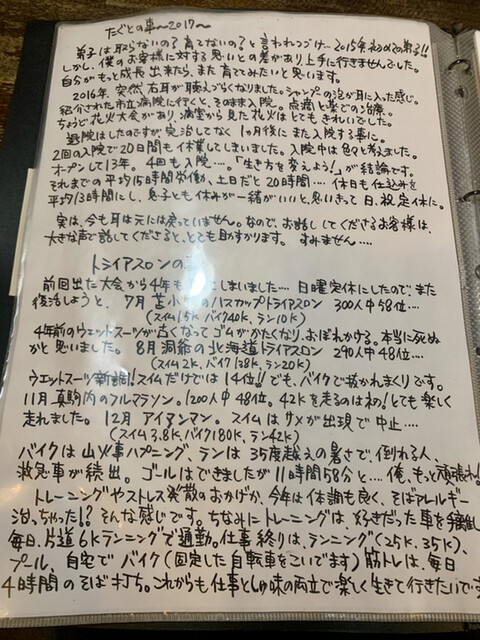 たぐとの事〜2017〜
弟子は取らないの？育てないの？と言われつづけ…2015年初めての弟子!!
しかし、僕のお客様に対する思いとの差があり上手に行きませんでした。
自分がもっと成長出来たら、また育てみたいと思います。
2016年突然、右耳が聴えづらくなりました。シャンプーの泡が耳に入った感じ。
紹介された市立病院に行くと、そのまま入院。点滴と薬での治療。
ちょうど花火大会があり、病室から見た花火はとてもきれいでした。
退院はしたのですが、完治してなく1ヶ月後にまた入院する事に。
2回の入院で20日間も休業してしまいました。入院中は色々と考えました。
オープンして13年。4回も入院…。「生き方を変えよう！」が結論です。
それまでの平均15時間労働、土日だと20時間….休日も仕込みを
平均13時間にし、息子とも休みが一緒がいいと思いきって日、祝定休に。
実は、今も耳は元には戻っていません。なので、お話ししてくださるお客様は、
大きな声で話してくださると、とても助かります。すみません….
トライアスロンの
前回出た大会から4年も しまいました….日曜定休にしたので、また
復活しようと、7月苫小 のハスカップトライアスロン 300人中58位….
(スイム1.5K バイク40K、ラン10K)
4年前のウェットスーツが古くなってゴムがかたくなり、おぼれかける。本当に死ぬ
かと思いました。8月洞爺の北海道トライアスロン 290人中48位….
(スイム2K、バイク138K、ラン20K)
ウエットスーツ新調！スイムだけでは14位!!でも、バイクで抜かれまくりです。
11月真駒内のフルマラソン。1200人中48位。42Kを走るのは初！とても楽しく
走れました。12月アイアンマン。スイムはサメが出現で中止….
(スイム3.8K、バイク180K、ラン42K)
バイクは山火事ハプニング、ランは35度越えの暑さで、倒れる人、
救急車が続出。ゴールはできましたが11時間58分と….俺、もっと頑張れ!
トレーニングやストレス発散のおかげか、今年は体調も良く、そばアレルギー
治っちゃった!?そんな感じです。ちなみにトレーニングは、好きだった車を手離し
毎日、片道6Kランニングで通勤。仕事終りは、ランニング(25K、35K)、
プール、自宅でバイク(固定した自転車をこいでます)筋トレは、毎日
4時間のそば打ち。これからも仕事としゅ味の両立で楽しく生きて行きたいで